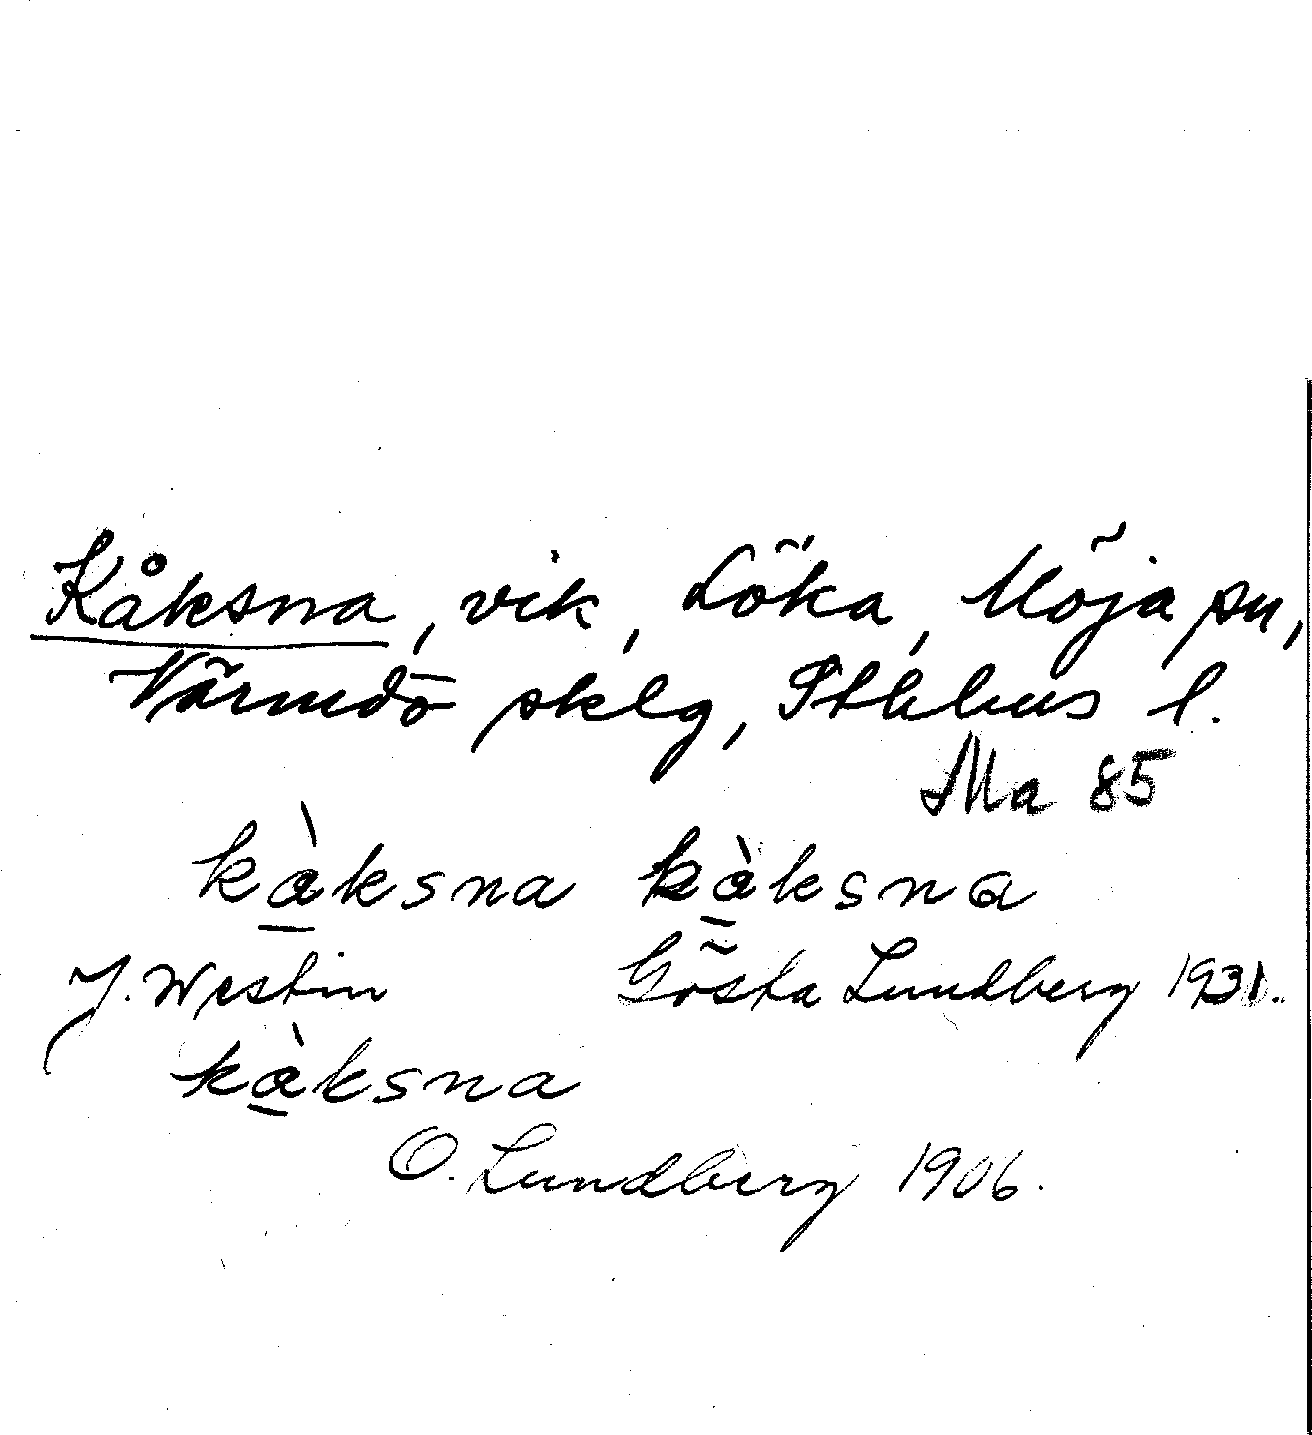 Kåksna, vik, Löka, Möja sn,
Värmdö sklg, Sthlms l.
Ma 85
kàksna kàksna
J. Westin Gösta Lundberg 1931.
kàksna
O. Lundberg 1906.